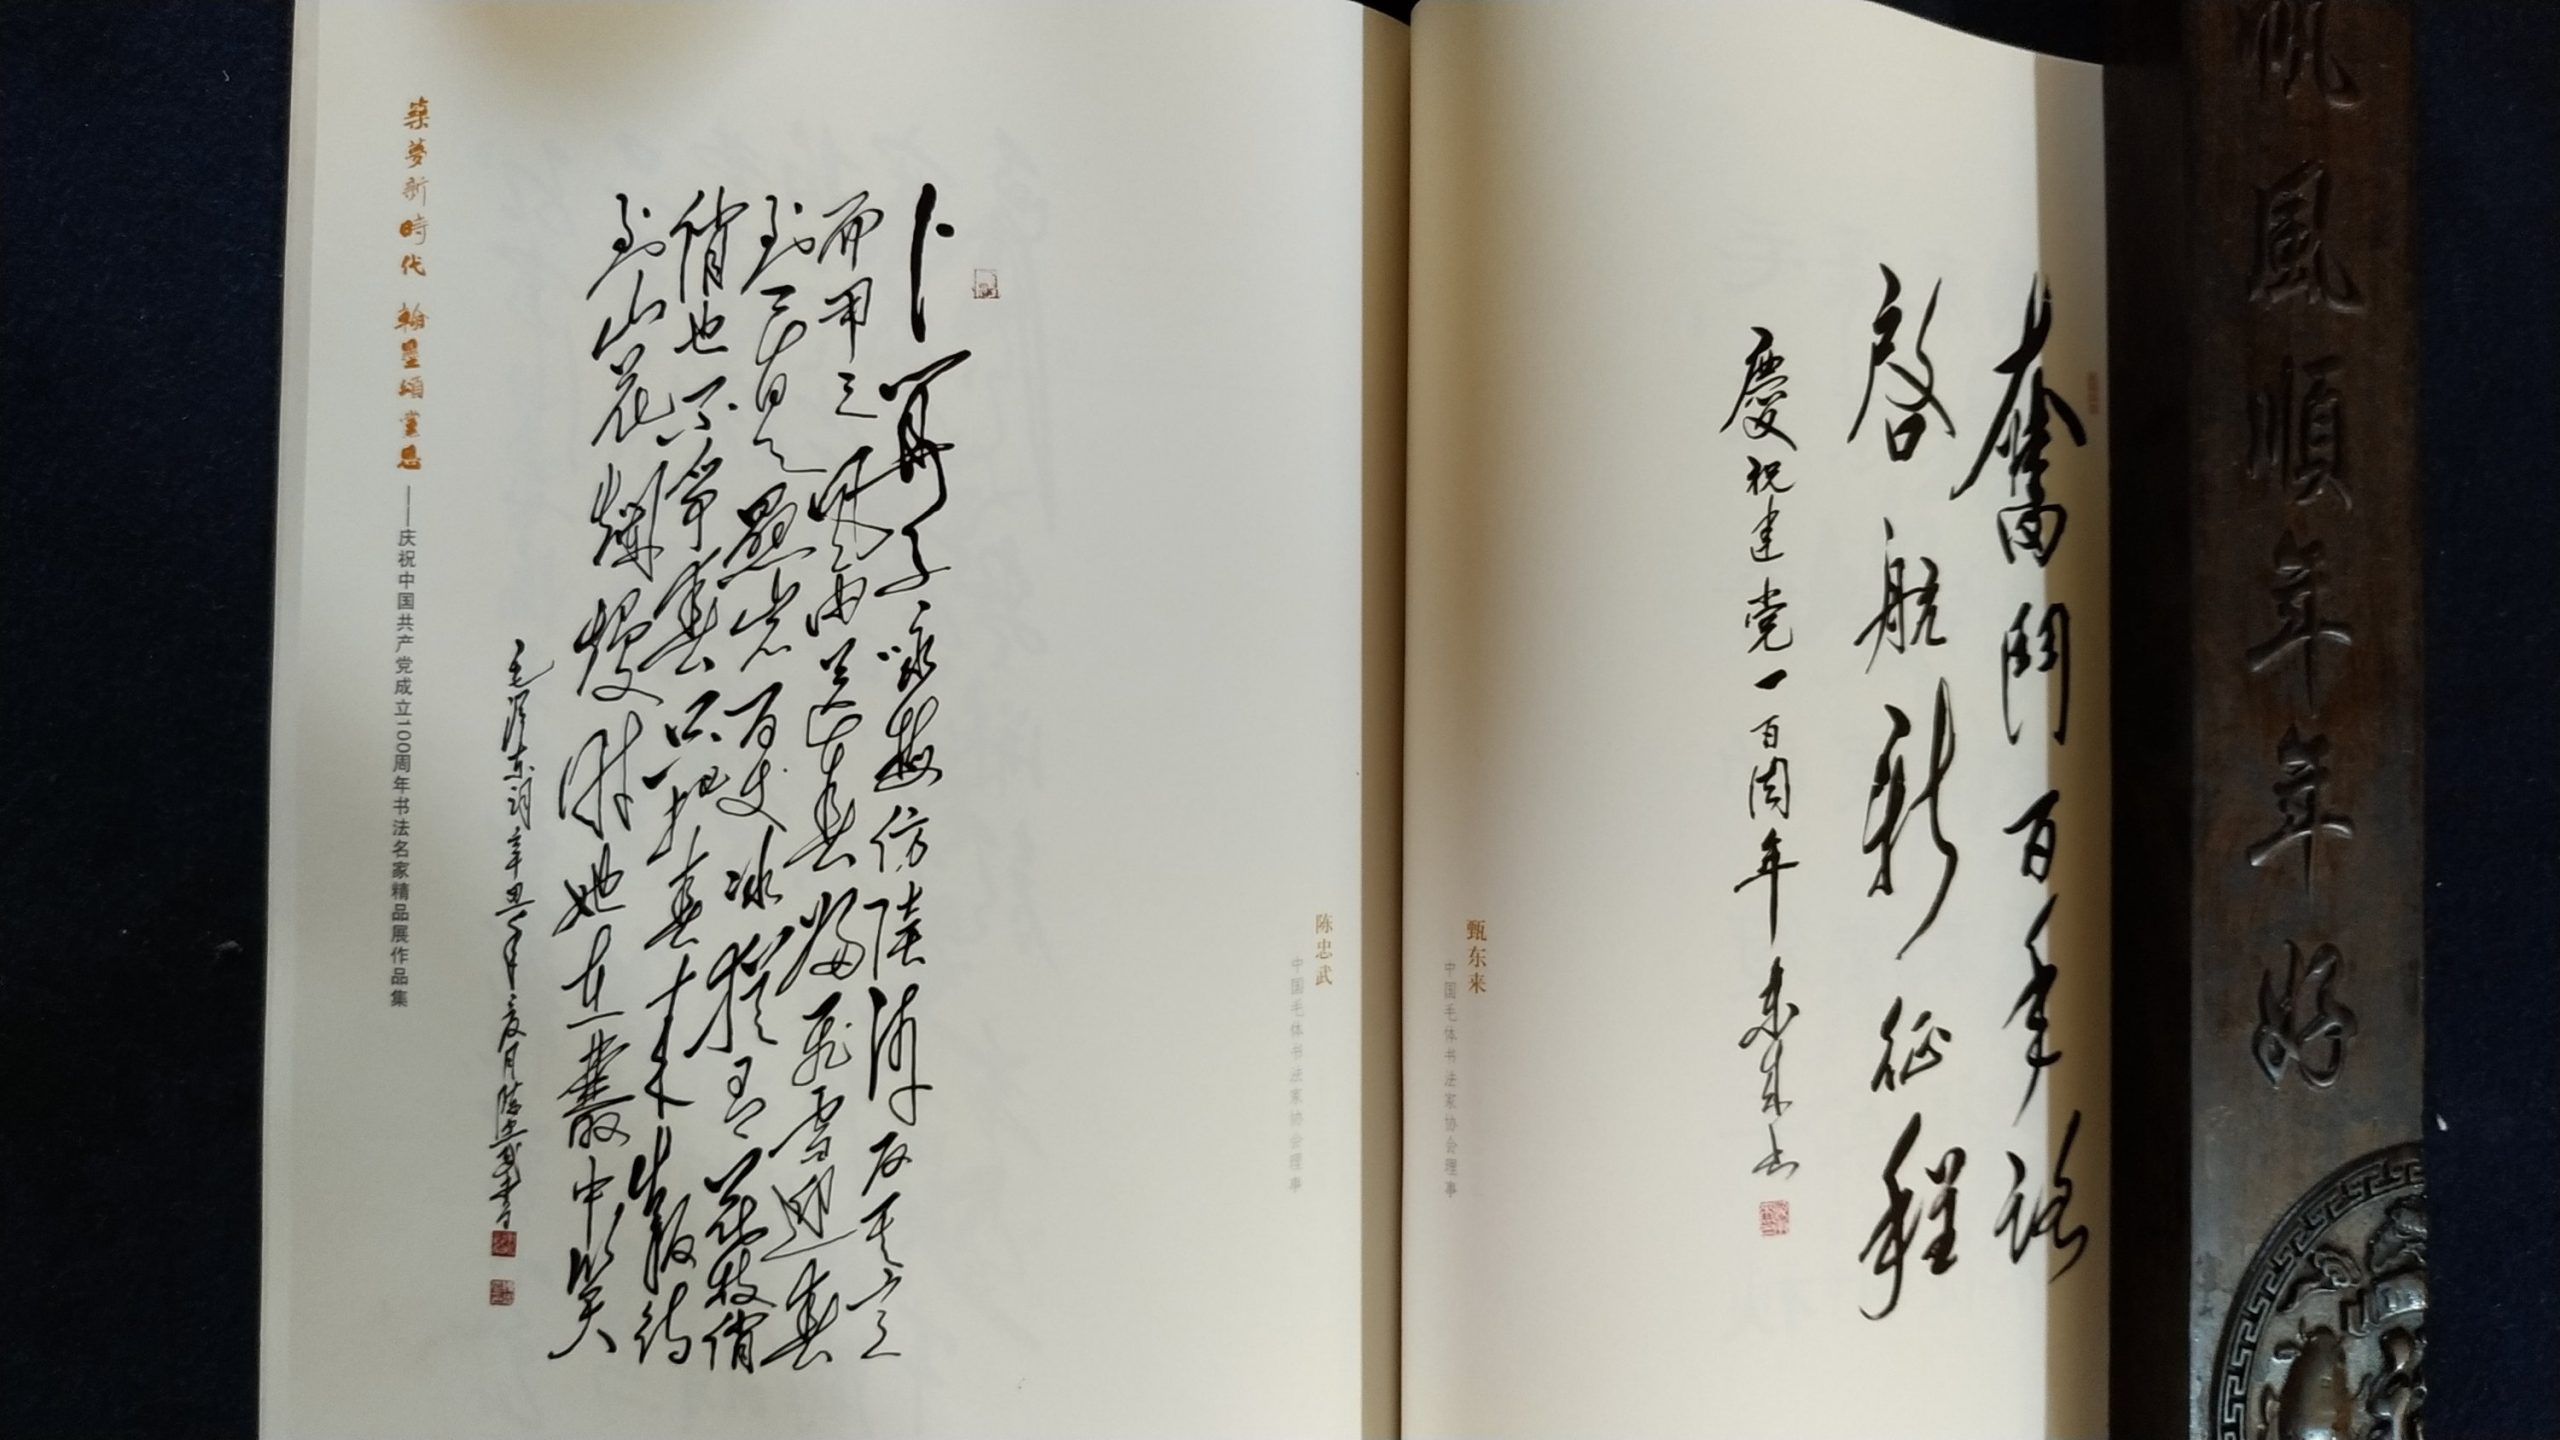 帆風順年年好
奮鬥百年路
啓航新征程
慶祝建党一百周年 东来书
甄东来
中国毛体书法家协会理事
陈忠武
中国毛体书法家协会理事
卜算子 咏梅 仿陸游反其意
而用之 风雨送春归 飞雪迎春
到 已是悬崖百丈冰 犹有花枝俏
俏也不争春 只把春来报 待
到山花爛漫时 她在叢中笑
毛泽东词 辛丑年夏月陈忠武书
築夢新時代 翰墨頌黨恩——庆祝中国共产党成立100周年书法名家精品展作品集